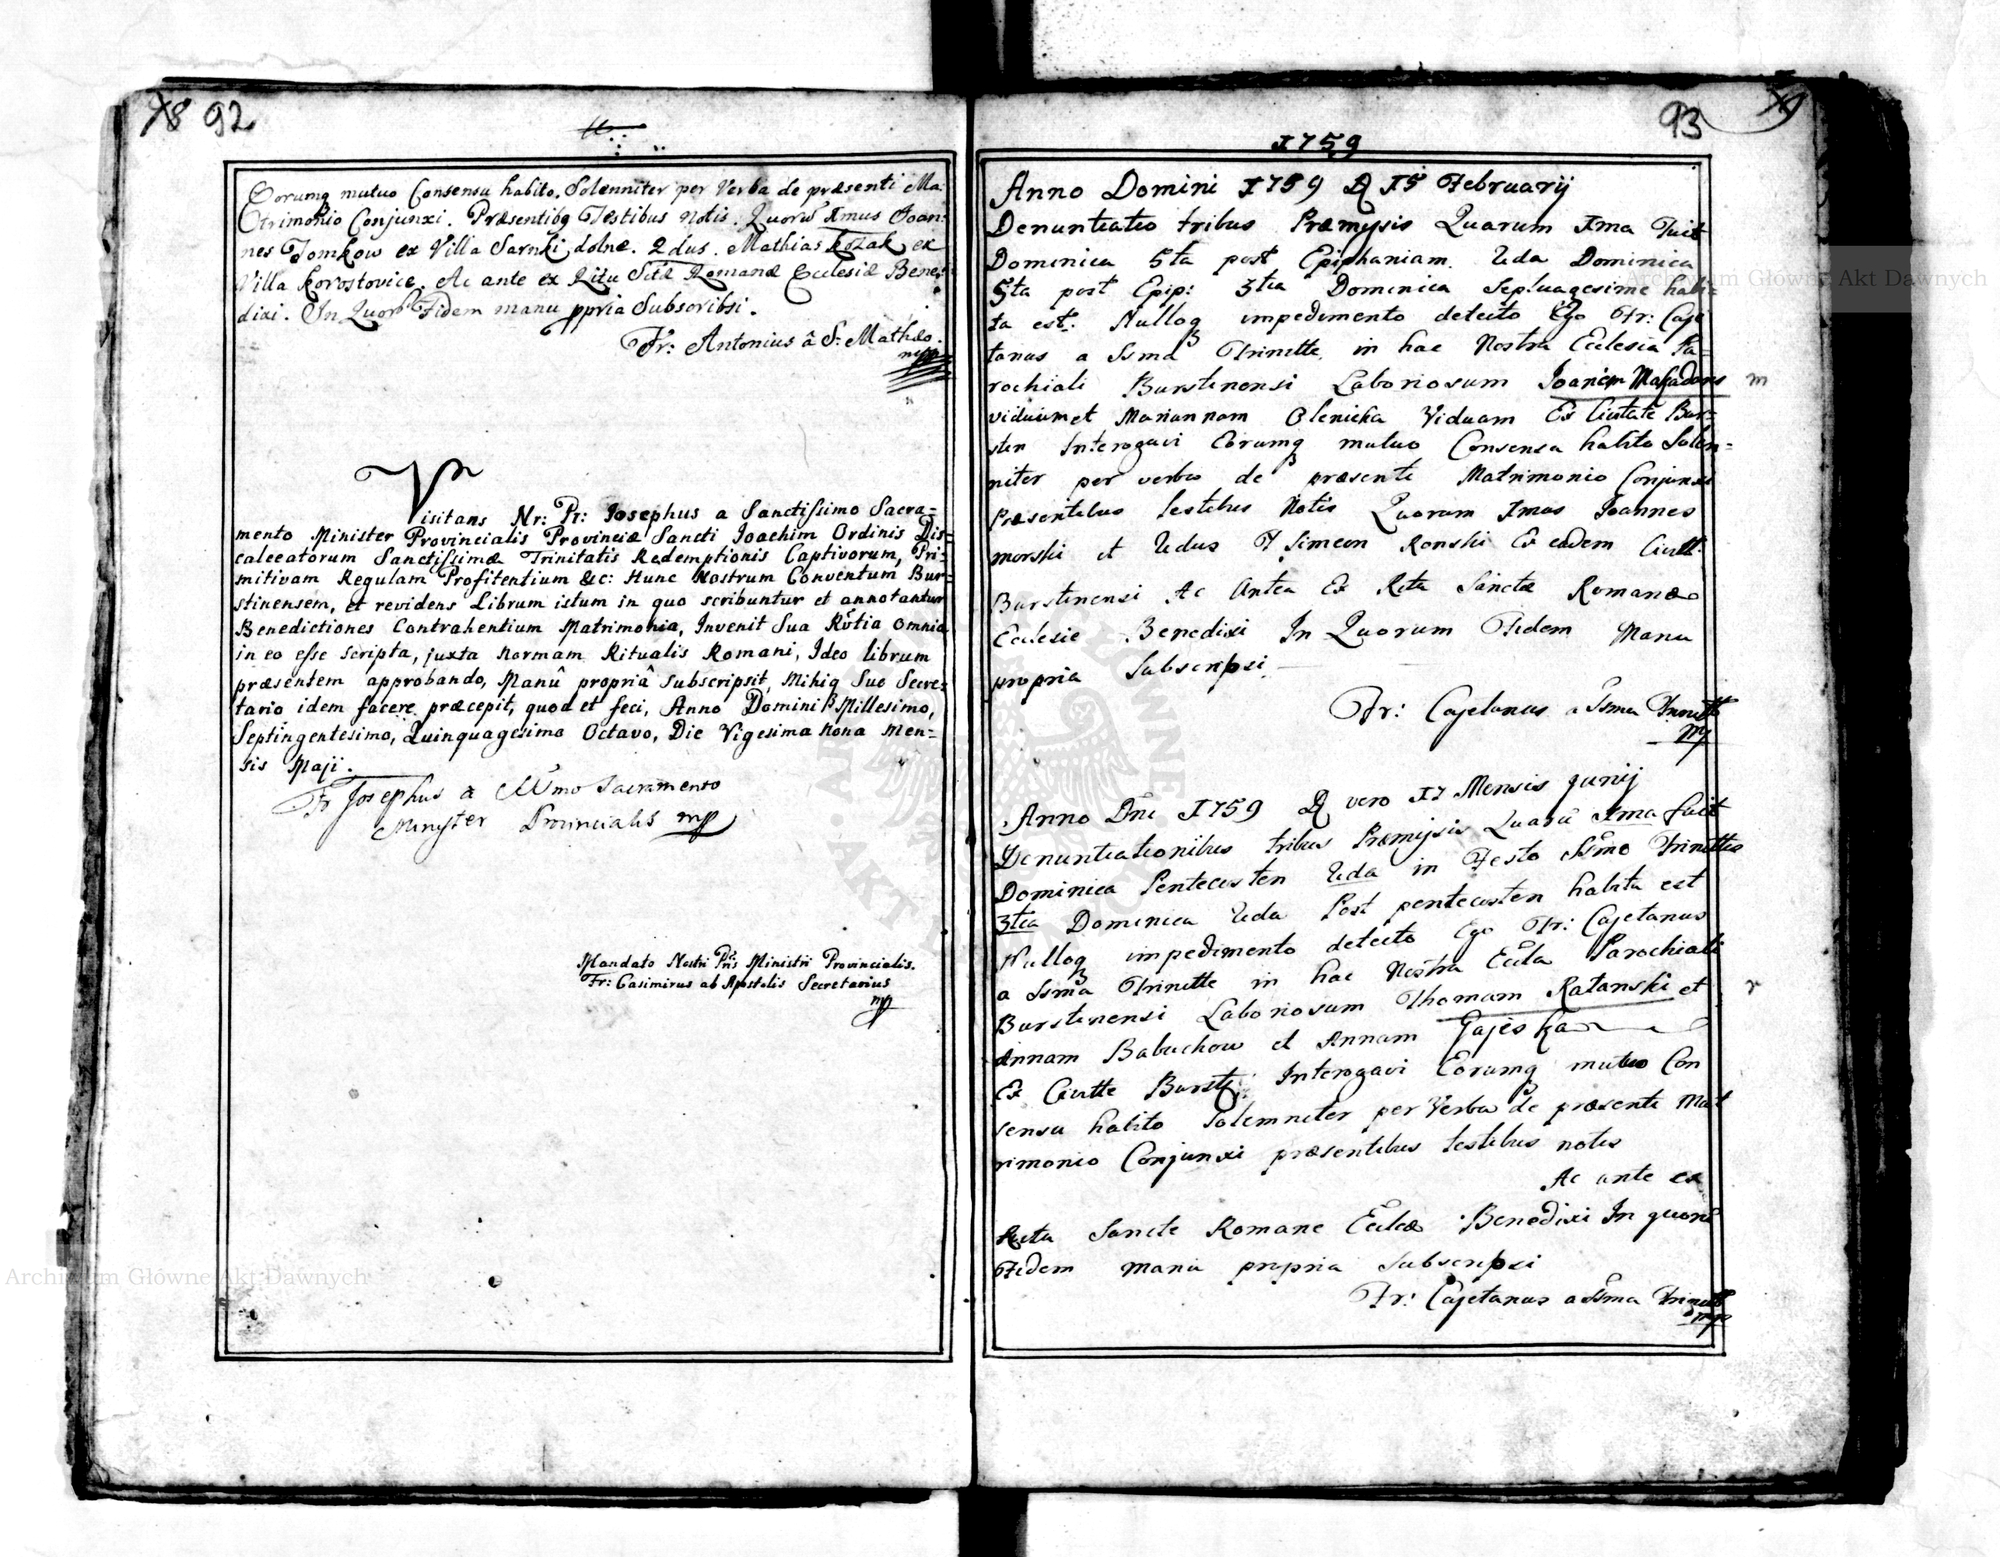 78 92
Eorumq mutuo Consensu habito. Solenniter per Verba de præsenti Ma-
trimonio Conjunxi. Præsentibq Testibus notis. Quorū Imus Joan-
nes Tomkow ex Villa Sarnki dolne. 2dus. Mathias Kozak ex
Villa Korostovice. Ac ante ex Ritu Sctæ Romanæ Ecclesiæ Bene-
dixi. In Quorū Fidem manu ppria Subscribsi.
Fr: Antonius â S: Mathæo.
mpp
Visitans Nr: Pr: Josephus a Sanctissimo Sacra-
mento Minister Provincialis Provinciæ Sancti Joachim Ordinis Dis-
calceatorum Sanctissimæ Trinitatis Redemptionis Captivorum, Pri-
mitivam Regulam Profitentium &c: Hunc Nostrum Conventum Bur-
stinensem, et revidens Librum istum in quo scribuntur et annotantur
Benedictiones Contrahentium Matrimonia, Invenit Sua Rntia omnia
in eo esse scripta, juxta Normam Ritualis Romani, Ideo librum
præsentem approbando, Manû propriâ subscripsit, Mihiq Suo Secre-
tario idem facere præcepit, quod et feci, Anno Domini Millesimo,
Septingentesimo, Quinquagesimo Octavo, Die Vigesima Nona Men-
sis Maji.
Fr Josephus a SSmo Sacramento
Minister Provincialis mpp
Mandato Nostri Pris Ministri Provincialis.
Fr: Casimirus ab Apostolis Secretarius
mpp
93 79
1759
Anno Domini 1759 D 15 Februarij
Denuntiatio tribus Præmysis Quarum Ima Fuit
Dominica 5ta post Epiphaniam. IIda Dominica
5ta post Epip: 3tia Dominica Septuagesime habi-
ta est. Nulloq impedimento detecto Ego Fr: Caje
tanus a Ssma Trinitte in hac Nostra Eclesia Pa-
rochiali Burstinensi Laboriosum Joanem m
viduum et Mariannam Olenicka Viduam Ex Ciutate Bur-
stin Interogavi Eorumq mutuo Consensa habito Solen-
niter per verba de præsente Matrimonio Conjunxi
Præsentibus testibus Notis Quorum Imus Joannes
morski et IIdus Simeon Ronski Ex eadem Ciutt:
Burstinensi Ac Antea Ex Ritu Sanctæ Romanæ
Eclesie Benedixi In Quorum Fidem Manu
propria Subscripsi.
Fr: Cajetanus a Ssma Trinitt
mp
Anno Dni 1759 D vero 17 Mensis Junij
Denuntiationibus tribus Præmysis Quarū Ima fuit
Dominica Pentecosten IIda in Festo Ssmo Trinittis
3tia Dominica IIda Post pentecosten habita est
Nulloq impedimento detecto Ego Fr: Cajetanus
a Ssma Trinitte in hac Nostra Eccla Parochiali
Burstinensi Laboriosum Thomam Ratanski et r
Annam Babuchow et Annam Gajeska
Ex Ciutte Burst: Interogavi Eorumq mutuo Con
sensu habito Solemniter per Verba de præsenti Mat
rimonio Conjunxi præsentibus testibus notis
Ac ante ex
Ritu Sancte Romane Eccleæ Benedixi In quorū
Fidem manu propria Subscripsi
Fr: Cajetanus a Ssma Trinitt
mp
Archiwum Główne Akt Dawnych
Archiwum Główne Akt Dawnych